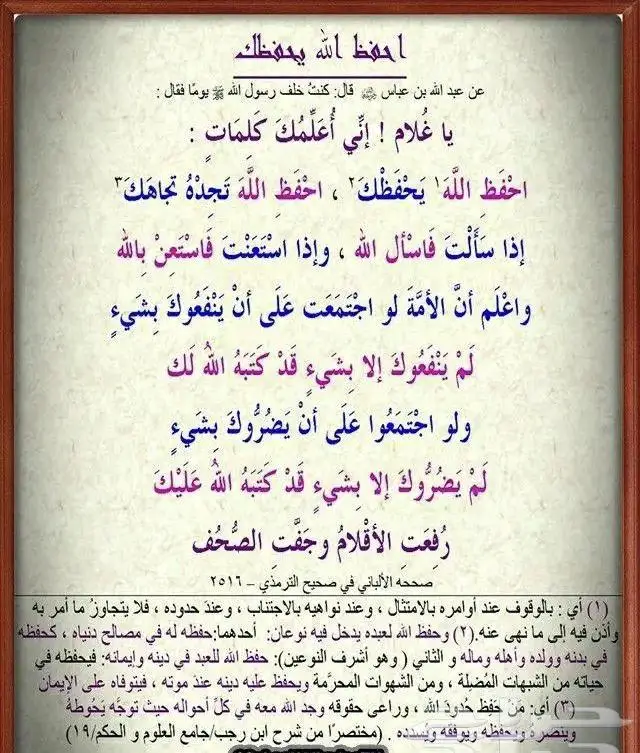 احفظ الله يحفظك
عن عبد الله بن عباس ﷺ قال: كنتُ خلف رسول الله ﷺ يومًا فقال :
يا غُلام ! إنِّي أُعَلِّمُكَ كَلِمَاتٍ :
احْفَظِ اللَّهَ¹ يَحْفَظْكَ² ، احْفَظِ اللَّهَ تَجِدْهُ تجاهَكَ³
إذا سَأَلْتَ فَاسْألِ الله ، وإذا اسْتَعَنْتَ فَاسْتَعِنْ بِالله
واعْلَم أنَّ الأمَّةَ لو اجْتَمَعَت عَلَى أنْ يَنْفَعُوكَ بِشَيءٍ
لَمْ يَنْفَعُوكَ إلا بِشَيءٍ قَدْ كَتَبَهُ اللهُ لَك
ولو اجْتَمَعُوا عَلَى أنْ يَضُرُّوكَ بِشَيءٍ
لَمْ يَضُرُّوكَ إلا بِشَيءٍ قَدْ كَتَبَهُ اللهُ عَلَيْكَ
رُفِعَتِ الأقْلامُ وجَفَّتِ الصُّحُف
صححه الألباني في صحيح الترمذي – ٢٥١٦
(١) أي : بالوقوف عند أوامره بالامتثال ، وعند نواهيه بالاجتناب ، وعندَ حدوده ، فلا يتجاوزُ ما أمر به
وأذن فيه إلى ما نهى عنه.(٢) وحفظ الله لعبده يدخل فيه نوعان: أحدهما:حفظه له في مصالح دنياه ، كحفظه
في بدنه وولده وأهله وماله و الثاني ( وهو أشرف النوعين): حفظ الله للعبد في دينه وإيمانه: فيحفظه في
حياته من الشبهات المُضِلة ، ومن الشهوات المحرَّمة ويحفظ عليه دينه عندَ موته ، فيتوفاه على الإيمان
(٣) أي: مَنْ حَفِظ حُدودَ الله ، وراعى حقوقه وجد الله معه في كلِّ أحواله حيث توجَّه يَحُوطُهُ
وينصرُه ويحفظه ويوفقه ويُسدده . (مختصرًا من شرح ابن رجب/جامع العلوم و الحكم/١٩)